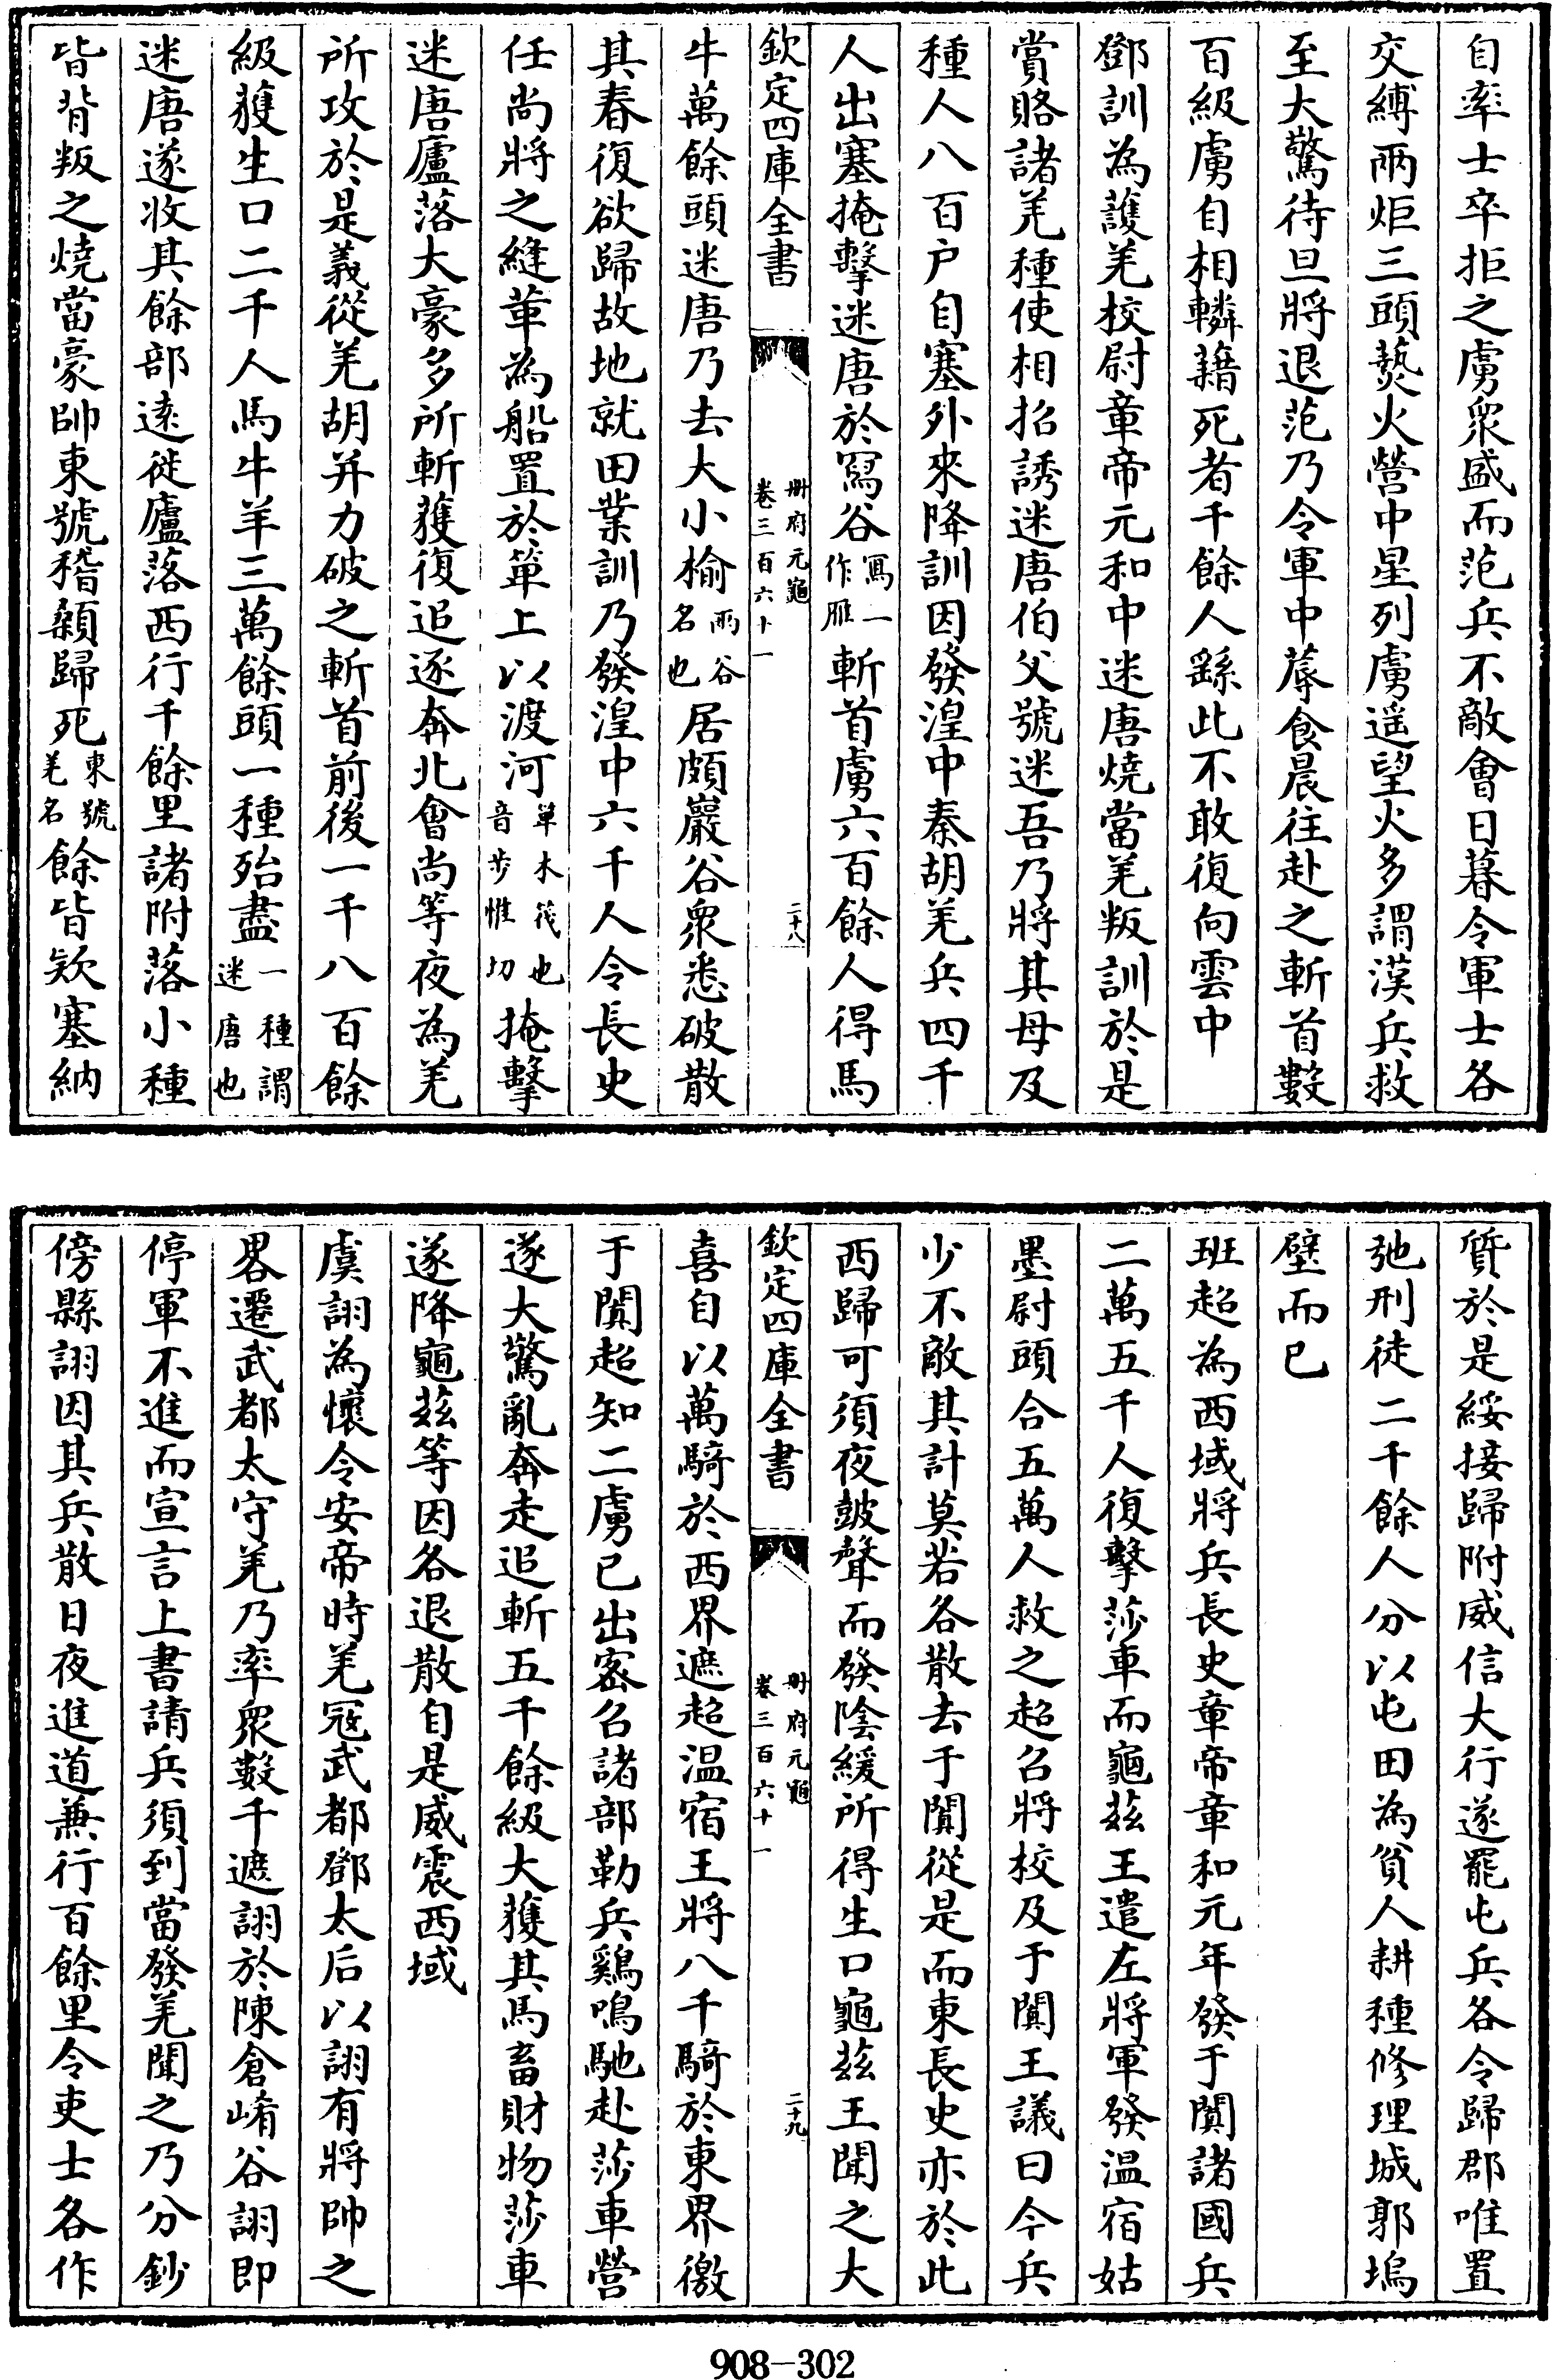 自率士卒拒之虜衆盛而范兵不敵會日暮令軍士各
交縛兩炬三頭爇火營中星列虜遥望火多謂漢兵救
至大驚待旦將退范乃令軍中蓐食晨往赴之斬首數
百級虜自相轔藉死者千餘人繇此不敢復向雲中
鄧訓為護羌校尉章帝元和中迷唐燒當羌叛訓於是
賞賂諸羌種使相招誘迷唐伯父號迷吾乃將其母及
種人八百户自塞外來降訓因發湟中秦胡羌兵四千
人出塞掩擊迷唐於寫谷寫一作雁斬首虜六百餘人得馬
欽定四庫全書 册府元龜卷三百六十一 二十八
牛萬餘頭迷唐乃去大小榆兩谷名也居頗巖谷衆悉破散
其春復欲歸故地就田業訓乃發湟中六千人令長史
任尚將之縫革為船置於箄上以渡河箄木筏也音步惟切掩擊
迷唐廬落大豪多所斬獲復追逐奔北會尚等夜為羌
所攻於是義從羌胡并力破之斬首前後一千八百餘
級獲生口二千人馬牛羊三萬餘頭一種殆盡一種謂迷唐也
迷唐遂收其餘部逺徙廬落西行千餘里諸附落小種
皆背叛之燒當豪帥東號稽顙歸死東號羌名餘皆欵塞納
質於是綏接歸附威信大行遂罷屯兵各令歸郡唯置
弛刑徒二千餘人分以屯田為貧人耕種修理城郭塢
壁而已
班超為西域將兵長史章帝章和元年發于闐諸國兵
二萬五千人復擊莎車而龜茲王遣左將軍發温宿姑
墨尉頭合五萬人救之超召將校及于闐王議曰今兵
少不敵其計莫若各散去于闐從是而東長史亦於此
西歸可須夜鼓聲而發陰緩所得生口龜茲王聞之大
欽定四庫全書 册府元龜卷三百六十一 二十九
喜自以萬騎於西界遮超温宿王將八千騎於東界徼
于闐超知二虜已出密召諸部勒兵鷄鳴馳赴莎車營
遂大驚亂奔走追斬五千餘級大獲其馬畜財物莎車
遂降龜茲等因各退散自是威震西域
虞詡為懷令安帝時羌冦武都鄧太后以詡有將帥之
畧遷武都太守羌乃率衆數千遮詡於陳倉崤谷詡即
停軍不進而宣言上書請兵須到當發羌聞之乃分鈔
傍縣詡因其兵散日夜進道兼行百餘里令吏士各作
908-302